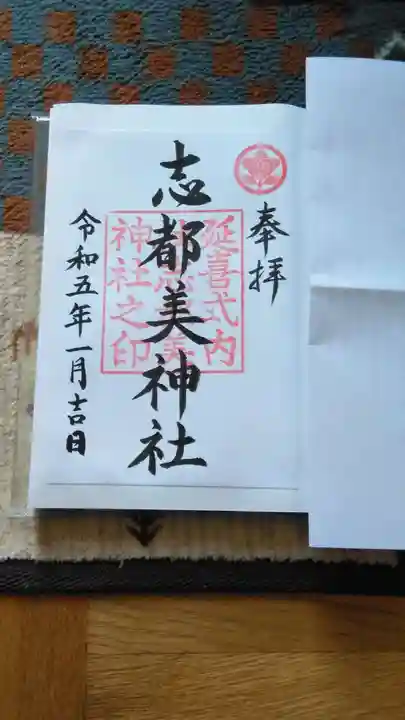 奉拝
志都美神社
延喜式内
神社之印
令和五年一月吉日